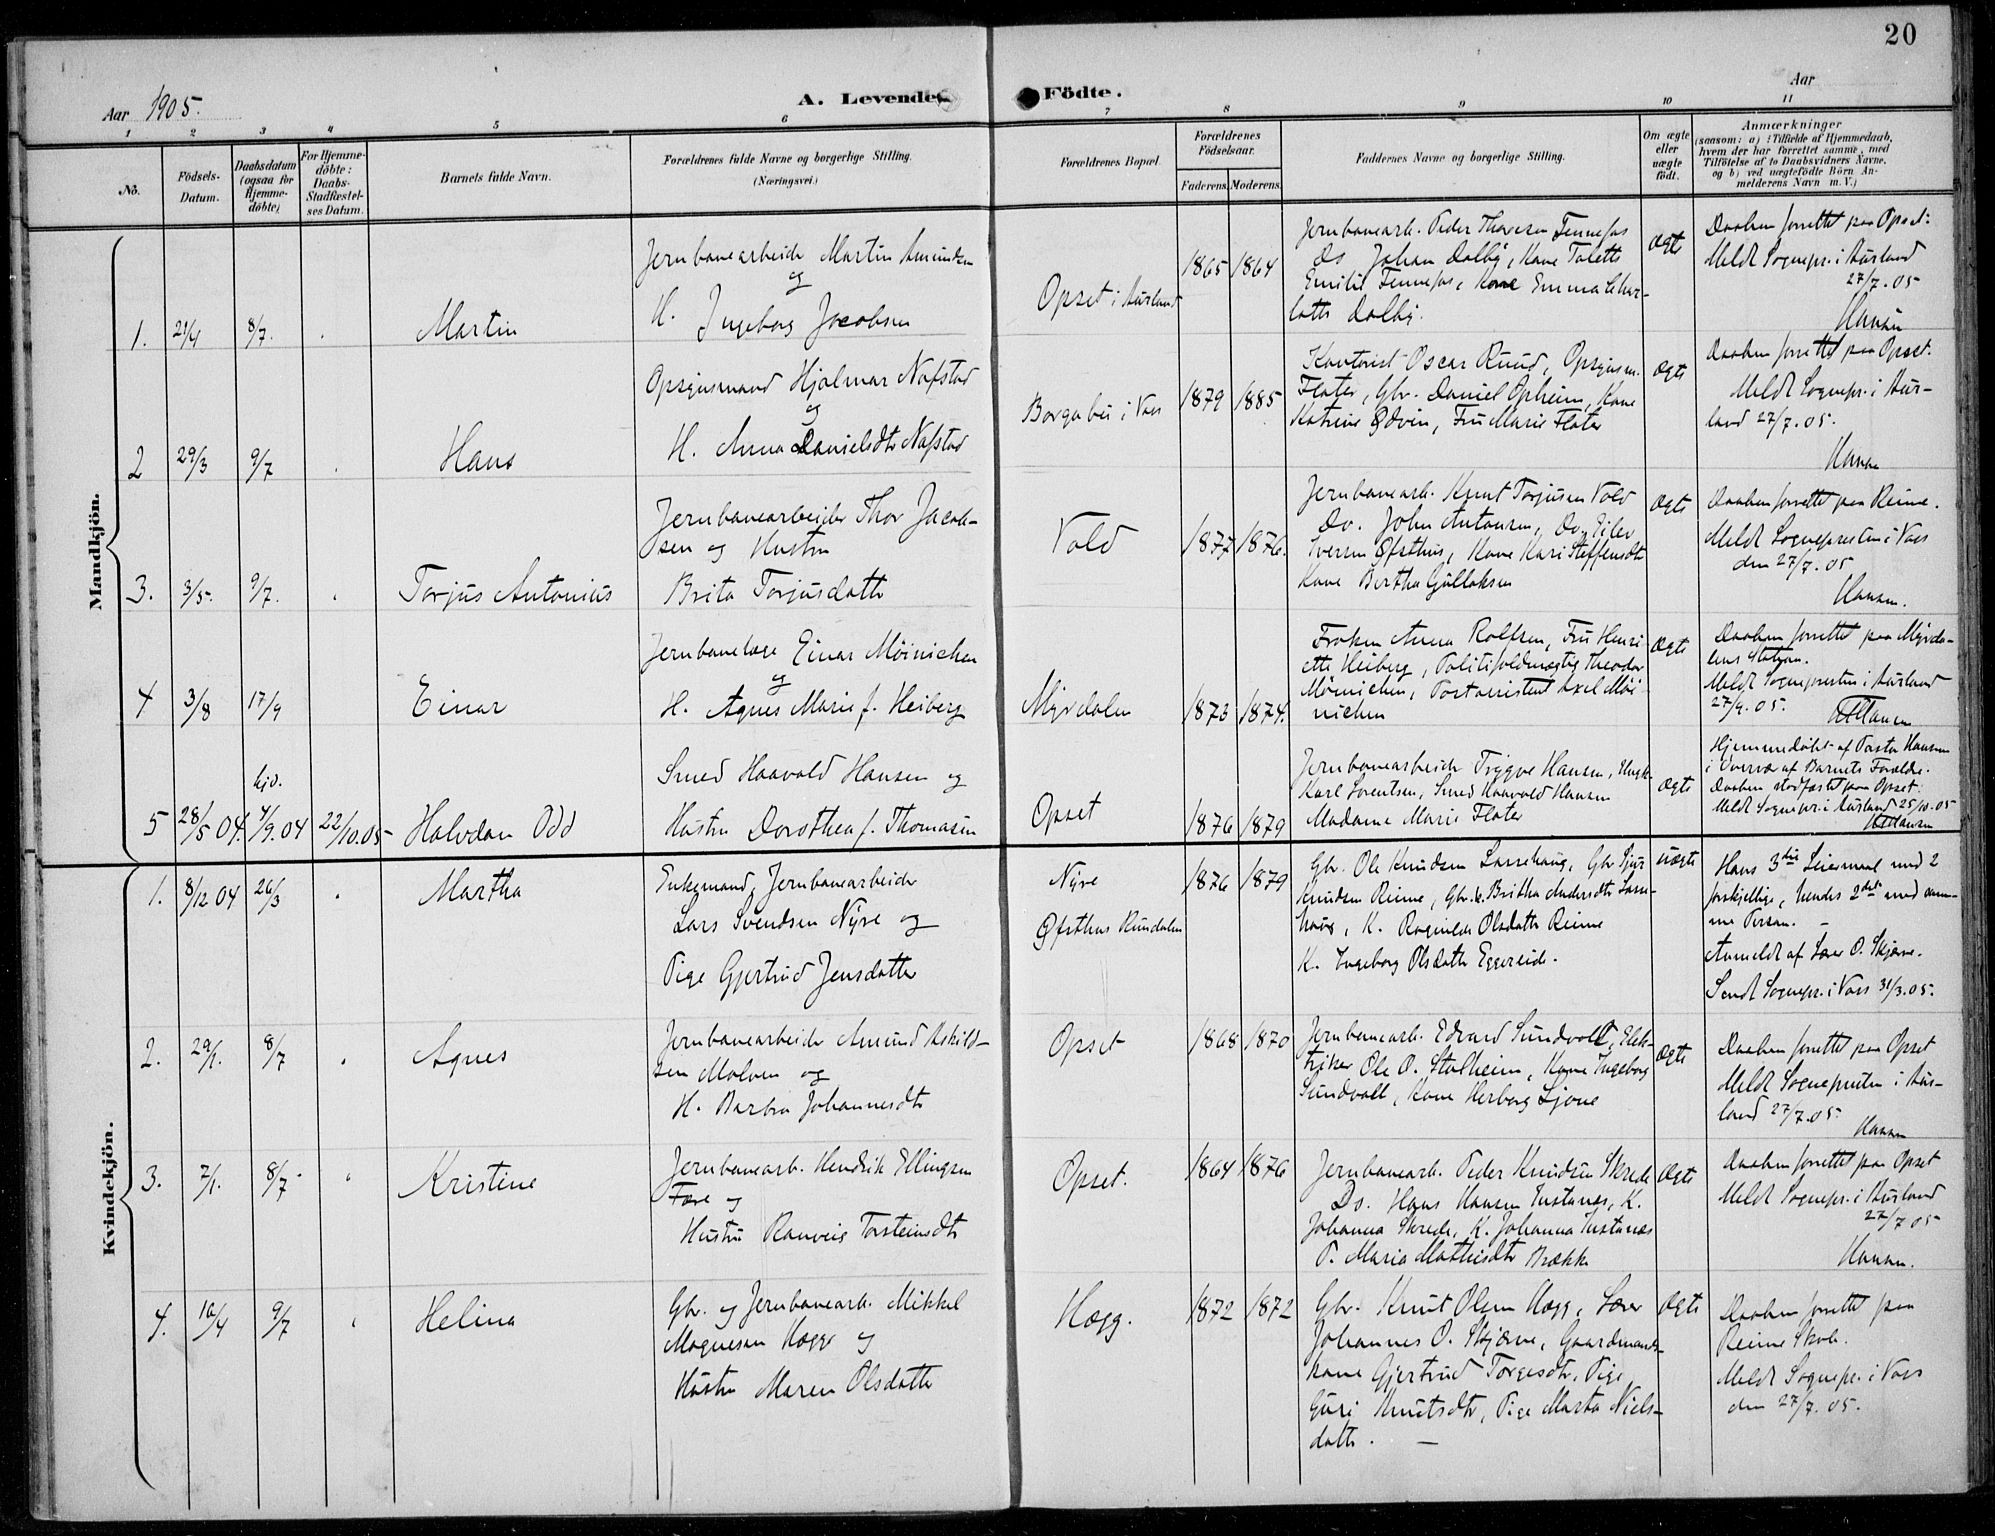 20
Aar 1905.
A. Levende Födte.
Aar
1 2 3 4 5 6 7 8 9 10 11
No.
Födsels-
Datum.
Daabsdatum
(ogsaa for
Hjemme-
döbte)
For Hjemme-
döbte:
Daabs-
Stadfæstel-
ses Datum.
Barnets fulde Navn.
Forældrenes fulde Navne og borgerlige Stilling.
(Næringsvei.)
Forældrenes Bopæl.
Forældrenes
Födselsaar.
Faderens. Moderens.
Faddernes Navne og borgerlige Stilling.
Om ægte
eller
uægte
födt.
Anmærkninger
(saasom: a) i Tilfælde af Hjemmedaab,
hvem der har forrettet samme, med
Tilföielse af to Daabsvidners Navne,
og b) ved uægtefödte Börn An-
melderens Navn m. V.)
Mandkjön.
1. 21/4 8/7. Martin
Jernbanearbeider Martin Amundsen
og
H. Ingeborg Jacobsen
Opset i Aurland
1865 1864
Jernbanearb. Peder Thoresen Tennefos
Do Johan Dalby, Kone Talette
Emilie Tennefos, Kone Emma Char-
lotte Dalby.
Ægte
Daaben forrettet paa Opset.
Meldt Sognepr. i Aurland
27/7.05
Hansen
2 29/3 9/7 Hans
Opsynsmand Hjalmar Nafstad
og
H. Anna Danielsdtr Nafstad
i Voss
1879 1885
Kontorist Oscar Ruud, Opsynsm.
Flater, Gbr. Daniel Opheim, Kone
Katrine Ødvin, Fru Marie Flater
Ægte
Daaben forrettet paa Opset.
Meldt Sognepr. i Aur-
land 27/7.05.
Hansen
3. 3/5. 9/7. Torjus Antonius
Jernbanearbeider Thor Jacob-
sen og Hustru
Brita Torjusdatter
Vold
1877 1876.
Jernbanearb. Knut Torjusen Vold
Do. John Antonsen, Do. Eilev
Iversen Øfsthus, Kone Kari Steffensdtr
Kone Bertha Gullaksen
Ægte
Daaben forrettet paa Reime.
Meldt Sognepresten i Voss
den 27/7.05
Hansen.
4 3/8 17/9 Einar
Jernbanelæge Einar Möinichen
og
H. Agnes Marie f. Heiberg
Myrdalen
1873 1874.
Frøken Anna Rolfsen, Fru Henri-
ette Heiberg, Politifuldmægtig Theodor
Möinichen, Postassistent Axel Möi-
nichen
Ægte
Daaben forrettet paa Myrda-
lens Station.
Meldt Sognepresten i Aurland
27/9.05. Hansen
5 28/5 04. hjd. 4/9.04 22/10.05 Halvdan Odd
Smed Haavald Hansen og
Hustru Dorothea f. Thomasen
Opset
1876 1879
Jernbanearbeider Trygve Hansen,
Karl Lorentsen, Smed Haavald Hansen
Madame Marie Flater
Ægte
Hjemmedøbt af Pastor Hansen
i Overvær af Barnets Forældre.
Daaben stadfæstet paa Opset.
Meldt Sognepr. i Aurland 25/10.05
Hansen
Kvindekjön.
1. 8/12 04 26/3 Martha
Enkemand, Jernbanearbeider
Lars Svendsen Nyre og
Pige Gjertrud Jensdatter
Nyre
Øfsthus Rundalen
1876 1879
Gbr. Ole Knudsen Lassehaug, Gbr Sjur
Knudsen Reime, Gbr.k. Britha Andersdtr Lasse-
haug, K. Ragnilda Olsdatter Reime
K. Ingeborg Olsdatter Eggereide.
uægte
Hans 3die Leiermaal med 2
forskjellige, hendes 2det med sam-
me Person. -
Anmeldt af Lærer O. Skjerve.
Sendt Sognepr. i Voss 31/3.05.
2. 29/1. 8/7 Agnes
Jernbanearbeider Amund Askild-
sen Molven og
H. Barbra Johannesdtr
Opset
1868 1870
Jernbanearb. Edvard Sundvoll, Elek-
triker Ole O. Stalheim, Kone Ingeborg
Sundvoll, Kone Herborg Ljone
Ægte
Daaben forrettet paa Opset
Meldt Sognepresten i Aur-
land 27/7.05.
Hansen
3. 7/1. 8/7 Kristine
Jernbanearb. Hendrik Ellingsen
Føre og
Hustru Ranveig Torsteinsdtr
Opset.
1864 1876
Jernbanearb. Peder Knudsen Skrede
Do. Hans Hansen Tustanes, K.
Johanna Skrede, K. Johanna Tustanes
P. Maria Mathisdtr Brække
Ægte
Daaben forrettet paa Opset
Meldt Sognepr. i Aurland
27/7 05
Hansen.
4. 10/4 9/7 Helina
Gbr. og Jernbanearb. Mikkel
Magnesen Hægg og
Hustru Maren Olsdatter
Hægg.
1872 1872
Gbr. Knut Olsen Hægg, Lærer
Johannes O. Skjerve, Gaardmands-
kone Gjertrud Torgesdtr, Pige
Guri Knutsdtr, Pige Marta Niels-
datter. -
Ægte
Daaben forrettet paa
Reime Skole.
Meldt Sognepr. i Voss
den 27/7.05.